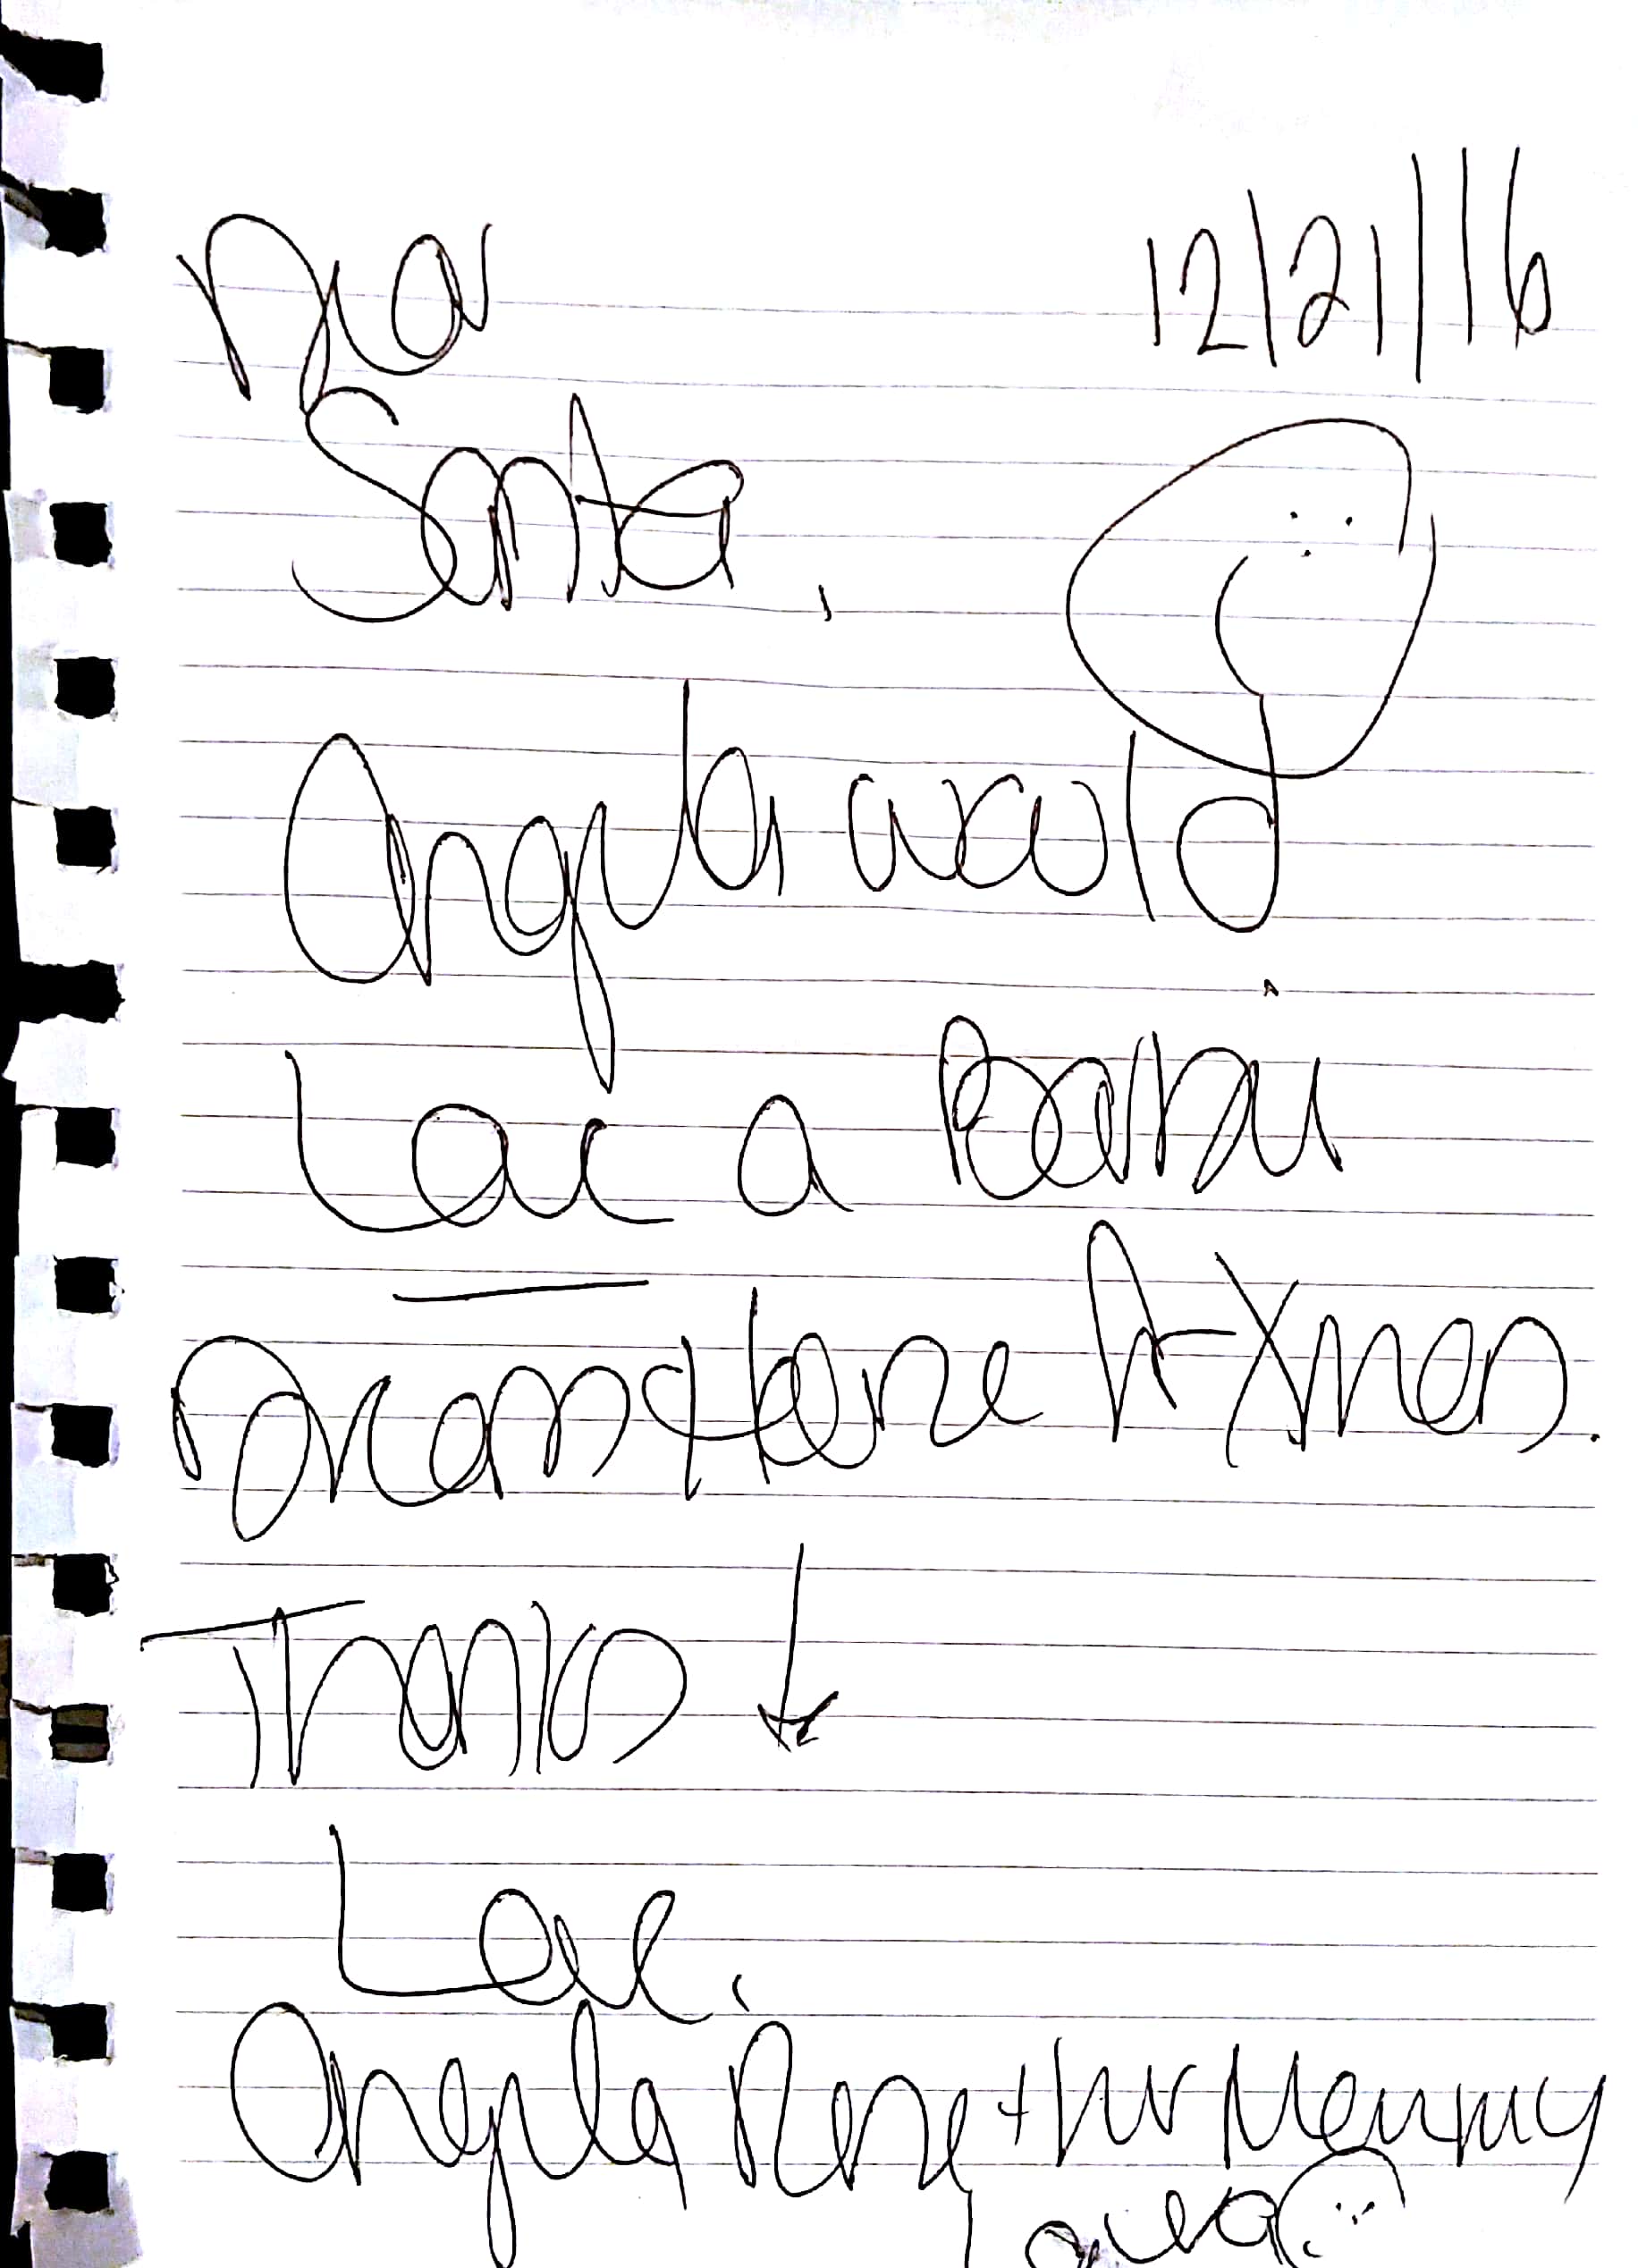 12/21/16
Dear
Santa,
Angela would
Love a Barbie
Dreamhome for Xmas.
Thanks
Love,
Angela Rose + her Mommy